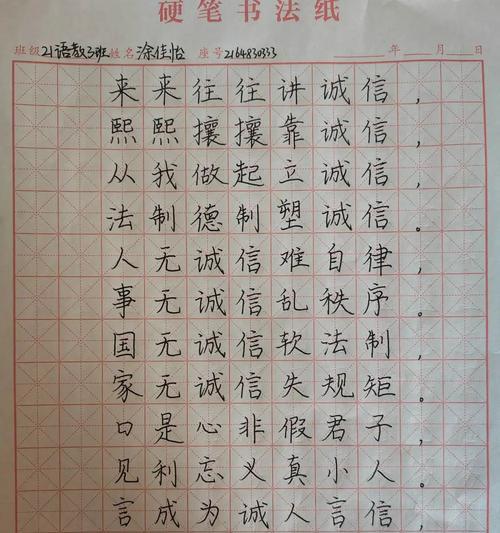 硬笔书法纸
班级21语教3班姓名涂佳怡 座号2164830333 年 月 日
来来往往讲诚信，
熙熙攘攘靠诚信，
从我做起立诚信，
法制德制塑诚信。
人无诚信难自律，
事无诚信乱秩序。
国无诚信软法制，
家无诚信失规矩。
口是心非假君子，
见利忘义真小人。
言成为诚人言信，